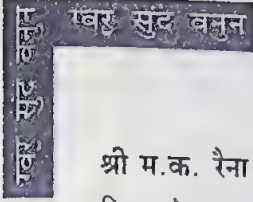 रबर सुंद वनुन
रबर सुंद वनुन
श्री म.क. रैना